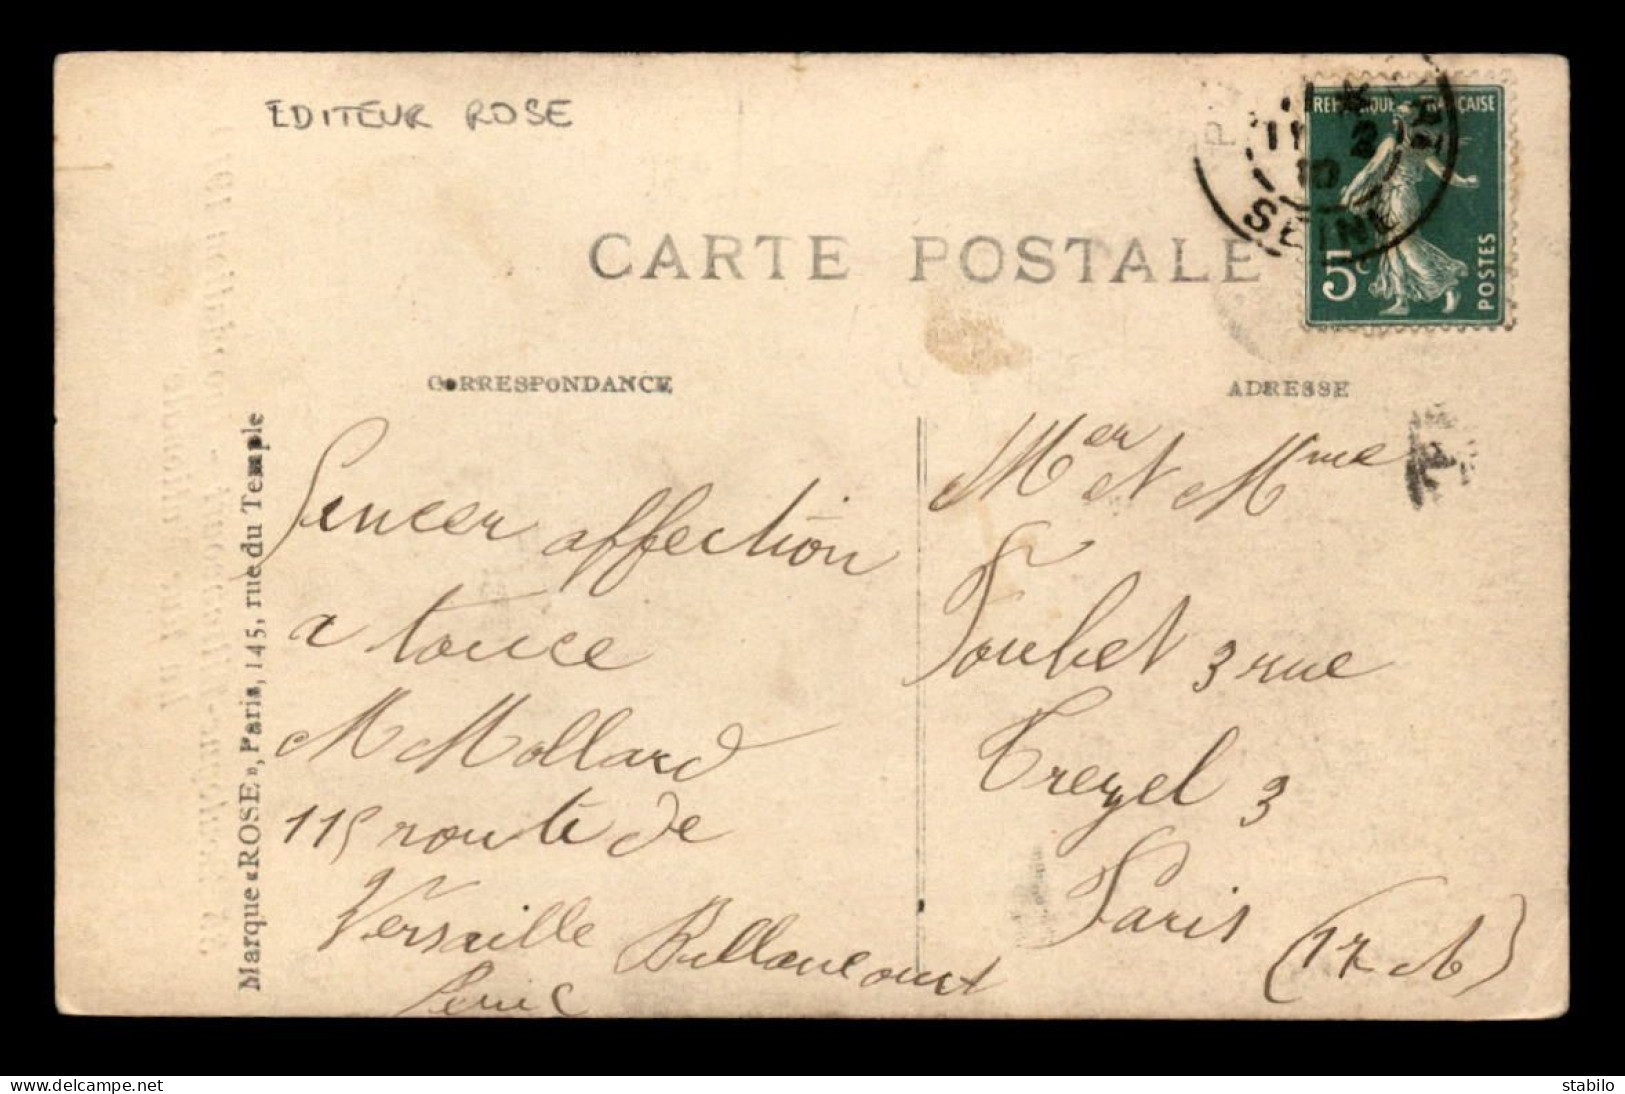 EDITEUR ROSE
REPUBLIQUE FRANÇAISE
5c
POSTES
11
2
10
SEINE
CARTE POSTALE
CORRESPONDANCE
ADRESSE
Marque «ROSE», Paris, 145, rue du Temple
Sincer affection
a touce
M Mollard
115 route de
Versaille Billancourt
Seine
Mer et Mme
Joubet 3 rue
Trezel 3
Paris
(17 A)